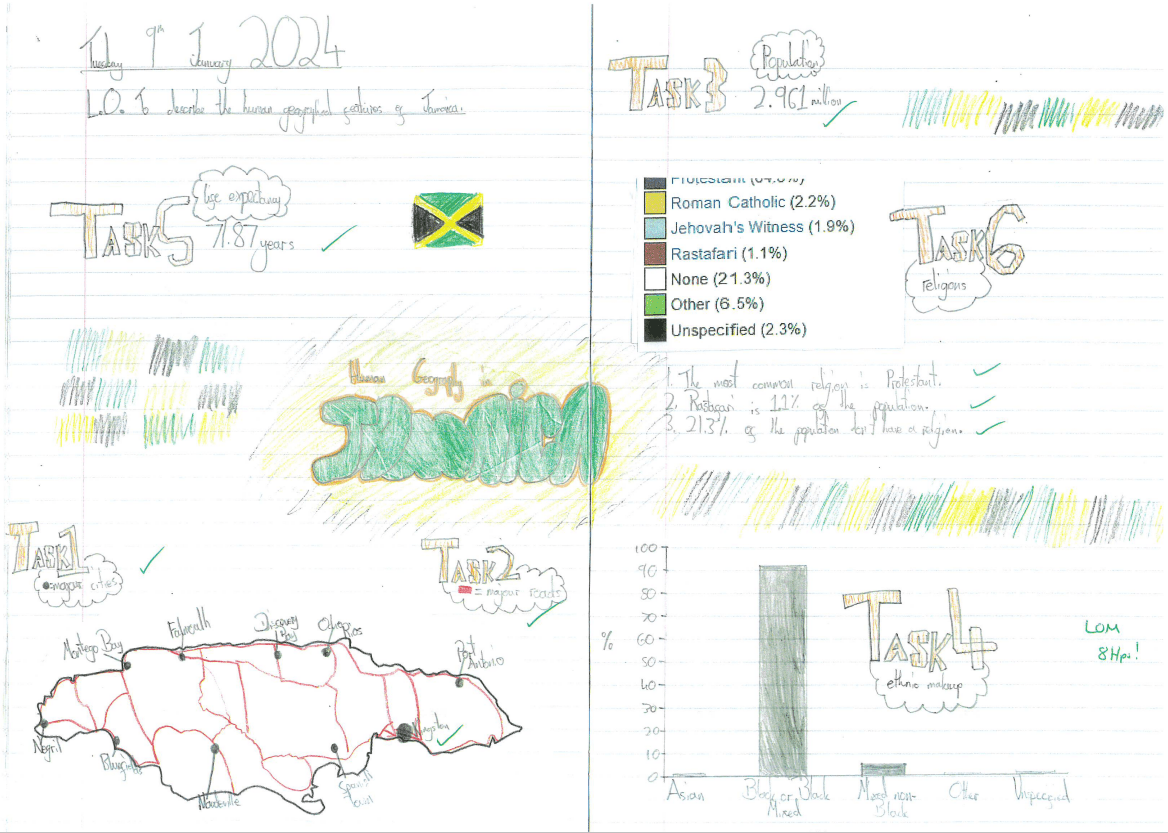 Tuesday 9th January 2024
L.O. To describe the human geographical features of Jamaica.
TASK 5
life expectancy
71.87 years
Human Geography in
JAMAICA
TASK 1
= majour cities
TASK 2
= majour roads
Montego Bay
Falmouth
Discovery
Bay
Ocho
Rios
Port
Antonio
Negril
Bluefields
Mandeville
Spanish
Town
Kingston
TASK 3
Population
2.961 million
Protestant (64.8%)
Roman Catholic (2.2%)
Jehovah's Witness (1.9%)
Rastafari (1.1%)
None (21.3%)
Other (6.5%)
Unspecified (2.3%)
TASK 6
religions
1. The most common religion is Protestant.
2. Rastafari is 1.1% of the population.
3. 21.3% of the population don't have a religion.
100
90
80
70
60
50
40
30
20
10
0
%
TASK 4
ethnic makeup
LOM
8Hps!
Asian
Black or Black
Mixed
Mixed non-
Black
Other
Unspecified